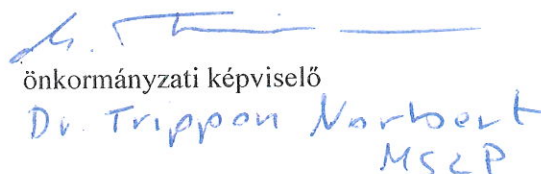 önkormányzati képviselő
Dr. Trippon Norbert
MSZP